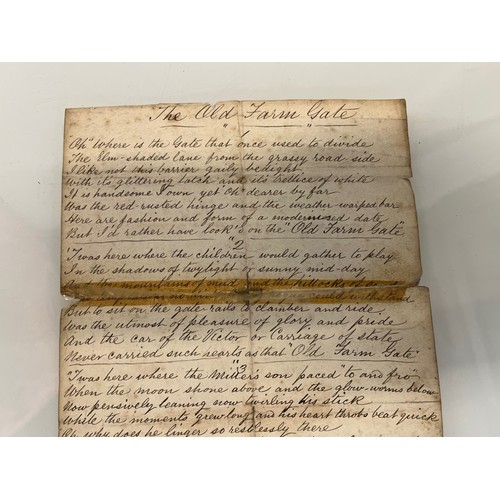 The Old Farm Gate
1
"Oh" Where is the Gate that once used to divide
The Elm-shaded lane from the grassy road side
I like not this barrier gaily bedight
With its glittering latch and its trellice of white
It is handsome I own yet "Oh" dearer by far
Was the red-rusted hinge and the weather-warped bar
Here are fashion and form of a modernised date
But I'd rather have look'd on the "Old Farm Gate"
"2
'Twas here where the children would gather to play
In the shadows of twylight or sunny mid-day
And the mountains of mud and the hillocks of
But to sit on the gate rails to clamber and ride
Was the utmost of pleasure of glory and pride
And the car of the Victor or Carriage of state
Never carried such hearts as that "Old Farm Gate"
"3
'Twas here where the Miller's son paced to and fro
When the moon shone above and the glow-worms below
Now pensively leaning now twirling his stick
While the moments grew long and his heart throbs beat quick
Oh why does he linger so restlessly there